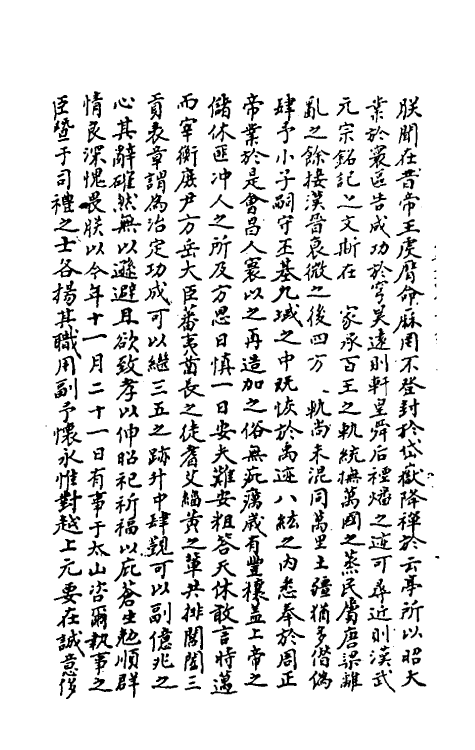 朕聞在昔帝王虔膺命厤罔不登封於岱嶽降禪於云亭所以昭大
業於寰區告成功於穹昊遠則軒皇舜后禋燔之迹可尋近則漢武
元宗銘記之文斯在 家承百王之軌統撫萬國之蒸民屬唐梁離
亂之餘接漢晉衰微之後四方 軌尚未混同萬里土疆猶多僭偽
肆予小子嗣守丕基九域之中既恢於禹迹八紘之內悉奉於周正
帝業於是會昌人寰以之再造加之俗無疵癘歲有豐穰蓋上帝之
儲休匪冲人之所及方思日慎一日安夫難安粗答天休敢言時邁
而宰衡庶尹方岳大臣蕃夷酋長之徒耆艾緇黃之輩共排閶闔三
貢表章謂為治定功成可以繼三五之跡升中肆覲可以副億兆之
心其辭確然無以遜避且欲致孝以伸昭祀祈福以庇蒼生勉順群
情良深愧畏朕以今年十一月二十一日有事于太山咨爾執事之
臣暨于司禮之士各揚其職用副予懷永惟對越上元要在誠意後